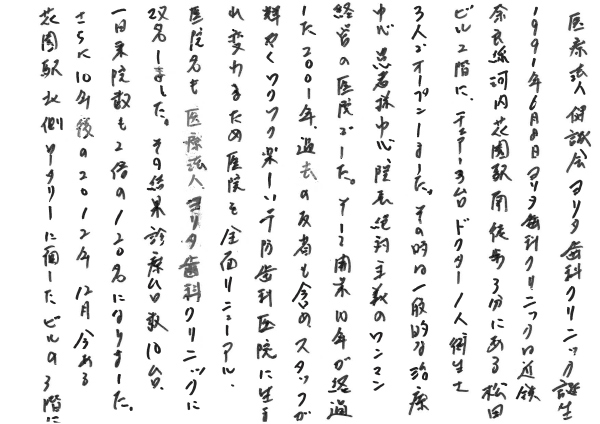 医療法人 健誠会 ヨリタ歯科クリニック誕生
1991年6月8日ヨリタ歯科クリニックは近鉄
奈良線河内花園駅南徒歩3分にある松田
ビル2階に、チェアー3台ドクター1人衛生士
3人でオープンしました。その時は一般的な治療
中心、患者様中心、院長絶対主義のワンマン
経営の医院でした。そして開業10年が経過
した2001年、過去の反省も含めスタッフが
輝やくワクワク楽しい予防歯科医院に生ま
れ変わるため医院を全面リニューアル、
医院名も 医療法人ヨリタ歯科クリニックに
改名しました。その結果診療台数10台、
一日来院数も2倍の120名になりました。
さらに10年後の2012年 12月 今ある
花園駅北側ロータリーに面したビルの3階に